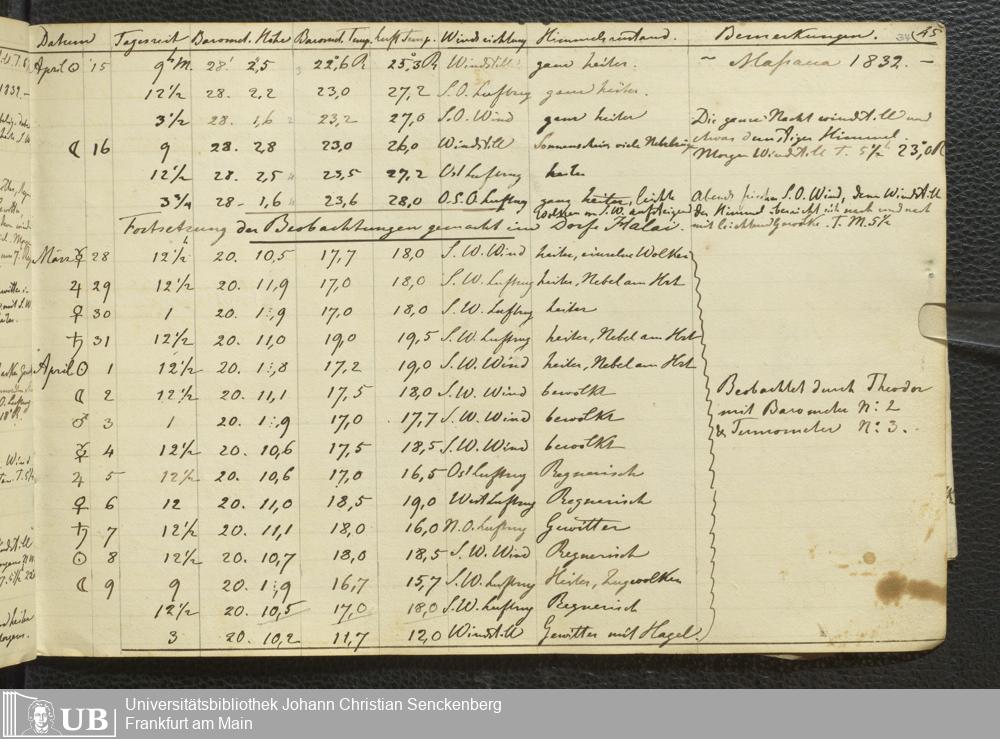 Datum Tageszeit Baromet. Höhe Baromet. Temp. Luft Temp. Windrichtung Himmelszustand. Bemerkungen. 34 45
April ☉ 15 9h M. 28' 2,5 22,6 R 25,3 R Windstill ganz heiter. – Massaua 1832. –
12 1/2 28. 2,2 23,0 27,2 S.O. Luftzug ganz heiter.
3 1/2 28. 1,6 23,2 27,0 S.O. Wind ganz heiter Die ganze Nacht windstill und
☾ 16 9 28. 2,8 23,0 26,0 Windstill Sonnenschein viele etwas dunstiger Himmel
Morgen Windstill T. 5 1/2 23,0 R
12 1/2 28. 2,5 23,5 27,2 Ost Luftzug heiter
3 3/4 28 – 1,6 23,6 28,0 O.S.O. Luftzug ganz heiter, leichte Abends frischer S.O. Wind, dann Windstill
Wolken in S.W. aufsteigend der Himmel sich nach und nach
Fortsetzung der Beobachtungen gemacht im Dorfe Halai. mit leichtem Gewölke. T. M. 5 1/2
März ☿ 28 12 1/2 20. 10,5 17,7 18,0 S.W. Wind heiter, einzelne Wolken
♃ 29 12 1/2 20. 11,9 17,0 18,0 S.W. Luftzug heiter, Nebel am Hzt
♀ 30 1 20. 1:,9 17,0 18,0 S.W. Luftzug heiter
♄ 31 12 1/2 20. 11,0 19,0 19,5 S.W. Luftzug heiter, Nebel am Hzt
April ☉ 1 12 1/2 20. 1:,8 17,2 19,0 S.W. Wind heiter, Nebel am Hzt
☾ 2 12 1/2 20. 11,1 17,5 18,0 S.W. Wind bewölkt Beobachtet durch Theodor
♂ 3 1 20. 1:,9 17,0 17,7 S.W. Wind bewölkt mit Barometer N: 2
☿ 4 12 1/2 20. 10,6 17,5 18,5 S.W. Wind bewölkt & Termometer N: 3.
♃ 5 12 1/2 20. 10,6 17,0 16,5 Ost Luftzug Regnerisch
♀ 6 12 20. 11,0 18,5 19,0 West Luftzug Regnerisch
♄ 7 12 1/2 20. 11,1 18,0 16,0 N.O. Luftzug Gewitter
☉ 8 12 1/2 20. 10,7 18,0 18,5 S.W. Wind Regnerisch
☾ 9 9 20. 1:,9 16,7 15,7 S.W. Luftzug Heiter, Zugwolken
12 1/2 20. 10,5 17,0 18,0 S.W. Luftzug Regnerisch
3 20. 10,2 11,7 12,0 Windstill Gewitter mit Hagel.
UB Universitätsbibliothek Johann Christian Senckenberg
Frankfurt am Main